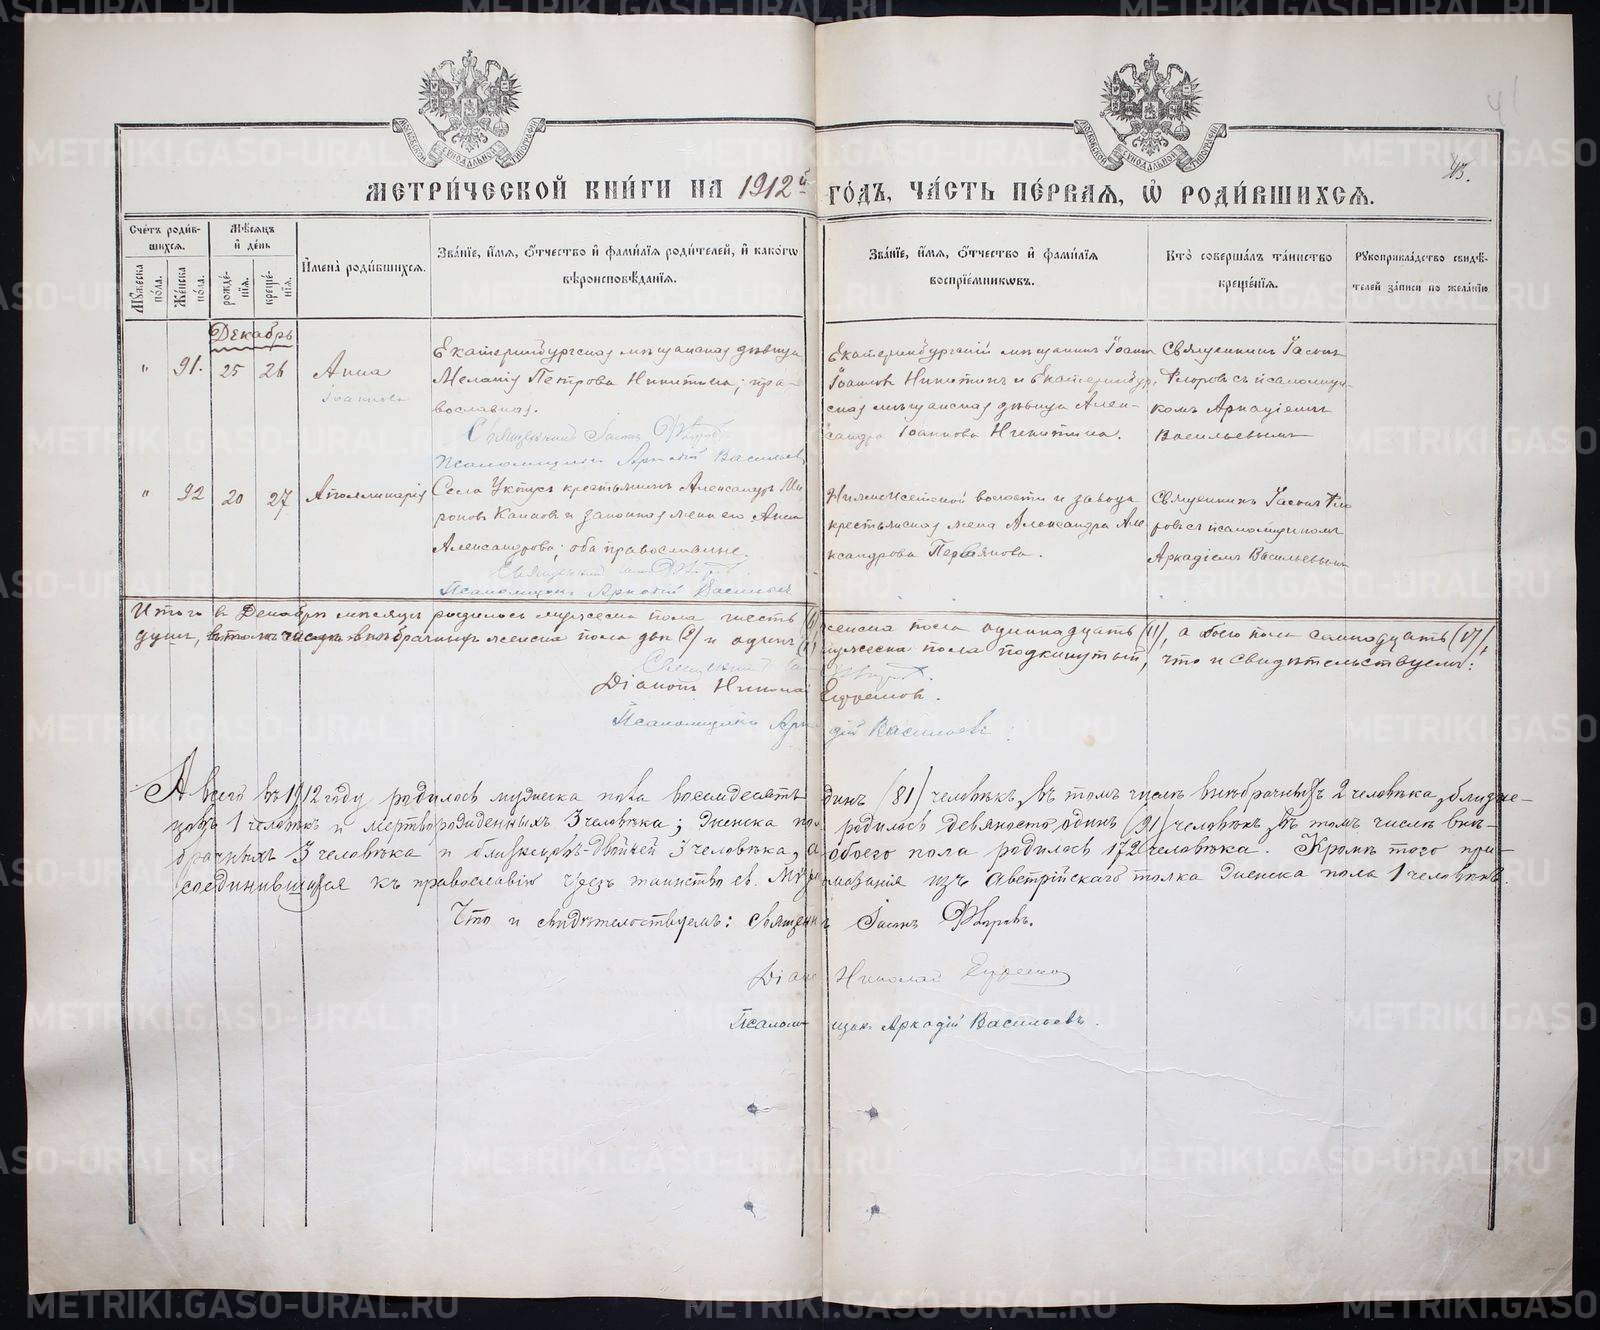 МОСКОВСКОЙ СѴНОДАЛЬНОЙ ТИПОГРАФІИ
МОСКОВСКОЙ СѴНОДАЛЬНОЙ ТИПОГРАФІИ
41
43.
МЕТРИ́ЧЕСКОЙ КНИ́ГИ НА 1912й ГО́ДЪ, ЧА́СТЬ ПЕ́РВАЯ, Ѡ҆ РОДИ́ВШИХСѦ.
Сче́тъ роди́в-
шихся.
Мѣ́сяцъ
и҆ де́нь
Мꙋ́жеска по́ла.
Же́нска по́ла.
рожде́-
нїѧ.
креще́-
нїѧ.
И҆мена̀ роди́вшихсѧ.
Зва́нїе, и҆́мѧ, ѻ҆́тчество и҆ фами́лїѧ роди́телей, и҆ како́гѡ
вѣроисповѣ́данїѧ.
Зва́нїе, и҆́мѧ, ѻ҆́тчество и҆ фами́лїѧ
воспрїе́мникѡвъ.
Кто̀ соверша́лъ та́инство
креще́нїѧ.
Рꙋкоприкла́дство свидѣ́-
телей за́писи по жела́нїю
Декабрь
" 91. 25 26 Анна
Іоаннова
Екатеринбургская мѣщанская дѣвица
Меланія Петрова Никитина; пра-
вославная.
Священникъ Іасонъ Флоровъ
Псаломщикъ Аркадій Васильевъ
Екатеринбургскій мѣщанинъ Іоаннъ
Іоанновъ Никитинъ и Екатеринбур-
ская мѣщанская дѣвица Алек-
сандра Іоаннова Никитина.
Священникъ Іасонъ
Флоровъ съ псаломщи-
комъ Аркадіемъ
Васильевымъ
" 92 20 27 Аполлинарія
Села Уктуса крестьянинъ Александръ Ми-
роновъ и законная жена его Анна
Александрова; оба православные.
Священникъ Іасонъ Флоровъ
Псаломщикъ Аркадій Васильевъ
волости и завода
крестьянская жена Александра Але-
ксандрова.
Священникъ Іасонъ Фло-
ровъ съ псаломщикомъ
Аркадіемъ Васильевымъ
Итого въ Декабрѣ мѣсяцѣ родилось мужеска пола шесть (6) женска пола одиннадцать (11), а обоего пола семнадцать (17),
душъ, въ томъ числѣ внѣбрачныхъ женска пола двѣ (2) и одинъ (1) мужеска пола подкинутый, что и свидѣтельствуемъ:
Священникъ Іасонъ Флоровъ.
Діаконъ Николай Ефремовъ.
Псаломщикъ Аркадій Васильевъ.
А всего въ 1912 году родилось мужеска пола восемдесятъ одинъ (81) человѣкъ, въ томъ числѣ внѣбрачныхъ 2 человѣка, близне-
цовъ 1 человѣкъ и мертворожденныхъ 3 человѣка; женска пола родилось девяносто одинъ (91) человѣкъ, въ томъ числѣ внѣ-
брачныхъ 3 человѣка и близнецовъ-двойней 3 человѣка, а обоего пола родилось 172 человѣка. Кромѣ того при-
соединившаяся къ православію чрезъ таинство св. Мѵропомазанія изъ Австрійскаго толка женска пола 1 человѣкъ.
Что и свидѣтельствуемъ: Священникъ Іасонъ Флоровъ.
Діаконъ Николай Ефремовъ
Псаломщик. Аркадій Васильевъ.
METRIKI.GASO-URAL.RU